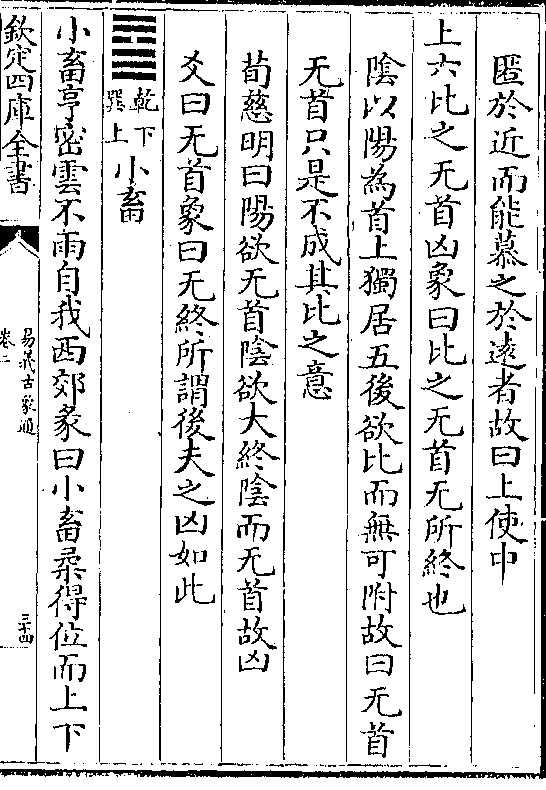 匿於近而能慕之於遠者故曰上使中
上六比之无首凶象曰比之无首无所終也
陰以陽為首上獨居五後欲比而無可附故曰无首
无首只是不成其比之意
荀慈明曰陽欲无首陰欲大終陰而无首故凶
爻曰无首象曰无終所謂後夫之凶如此
乾下
巽上
小畜
小畜亨密雲不雨自我西郊彖曰小畜柔得位而上下
欽定四庫全書
易義古象通
卷二
三十四